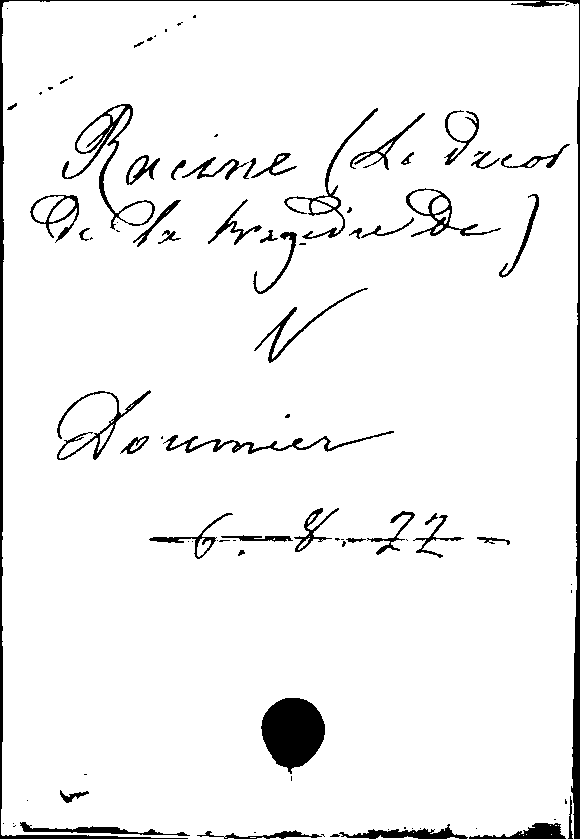 Racine (Le décor
de la tragédie de)
V
Doumier
6. 8. 22